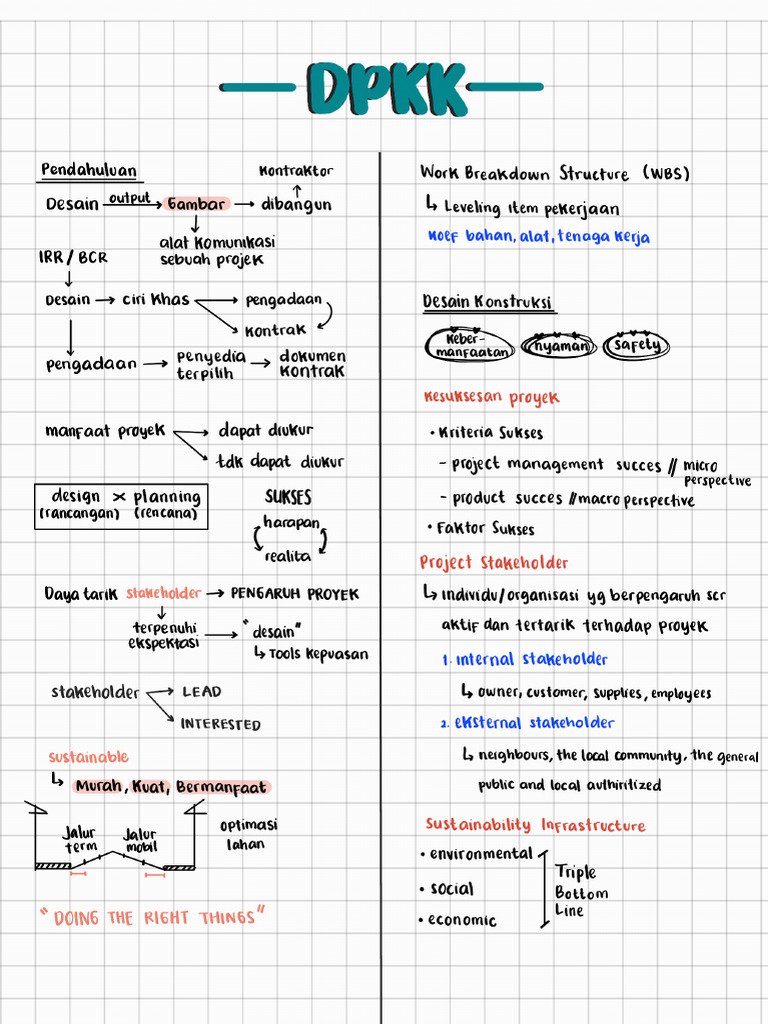 DPKK
Pendahuluan
Kontraktor
Desain output Gambar dibangun
alat komunikasi
sebuah projek
IRR / BCR
Desain ciri khas pengadaan
kontrak
pengadaan penyedia terpilih dokumen kontrak
manfaat proyek dapat diukur
tdk dapat diukur
design × planning
(rancangan) (rencana)
SUKSES
harapan
realita
Daya tarik stakeholder PENGARUH PROYEK
terpenuhi
ekspektasi
"desain"
Tools kepuasan
stakeholder LEAD
INTERESTED
sustainable
Murah, Kuat, Bermanfaat
Jalur
term
Jalur
mobil
optimasi
lahan
"DOING THE RIGHT THINGS"
Work Breakdown Structure (WBS)
Leveling item pekerjaan
koef bahan, alat, tenaga kerja
Desain Konstruksi
keber-
manfaatan
nyaman
safety
kesuksesan proyek
• Kriteria Sukses
- project management succes // micro
perspective
- product succes // macro perspective
• Faktor Sukses
Project Stakeholder
individu/organisasi yg berpengaruh scr
aktif dan tertarik terhadap proyek
1. internal stakeholder
owner, customer, supplies, employees
2. eksternal stakeholder
neighbours, the local community, the general
public and local authiritized
Sustainability Infrastructure
• environmental
• social
• economic
Triple
Bottom
Line